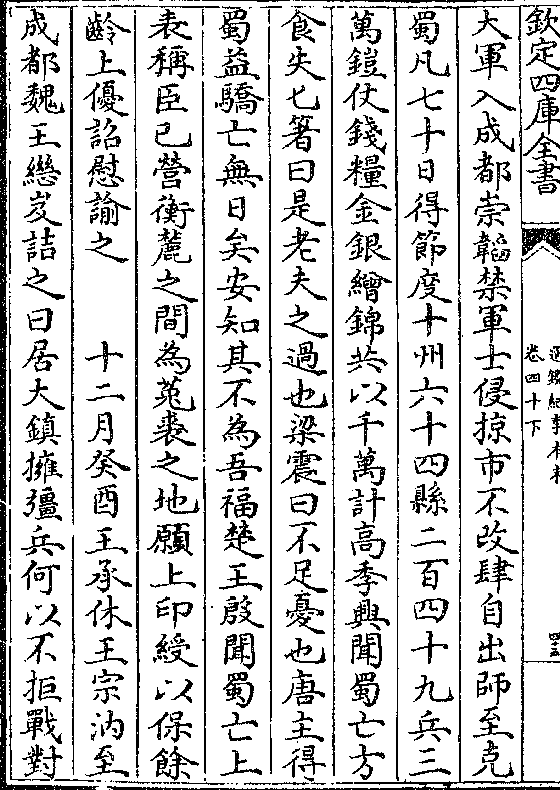 欽定四庫全書
卷四十下
大軍入成都崇韜禁軍士侵掠市不改肆自出師至克
蜀凡七十日得節度十州六十四縣二百四十九兵三
萬鎧仗錢糧金銀繒錦共以千萬計高季興聞蜀亡方
食失匕箸曰是老夫之過也梁震曰不足憂也唐主得
蜀益驕亡無日矣安知其不為吾福楚王殷聞蜀亡上
表稱臣已營衡麓之間為菟裘之地願上印綬以保餘
齡上優詔慰諭之　十二月癸酉王承休王宗汭至
成都魏王繼岌詰之曰居大鎮擁彊兵何以不拒戰對